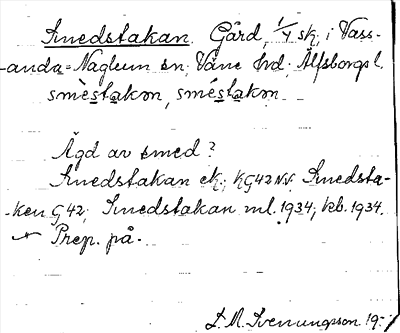 Smedstakan. Gård, 1/4 sk, i Vass-
-anda-Nagleum sn; Väne hd; Älfsborgs l.
smèstakɷn, sméstakɷn
Ägd av smed?
Smedstakan ek; KG42NV. Smedsta-
-ken G42; Smedstakan ml. 1934; kb. 1934.
Prep. på.
S. M. Svenungsson 19